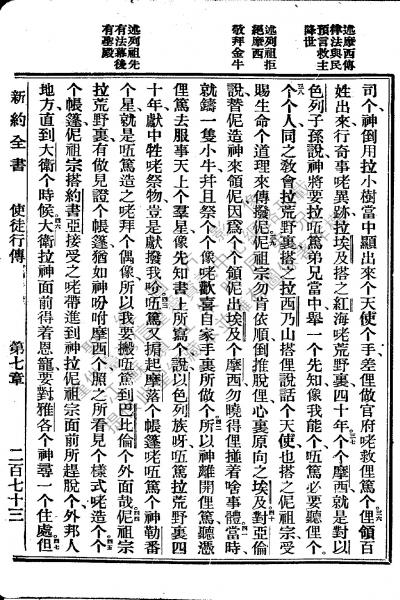 述摩西傳
律法與民
預言救主
降世
述列祖拒
絕摩西
敬拜金牛
述列祖先
有法幕後
有聖殿
司个神倒用拉小樹當中顯出來个天使个手差俚做官府咾救俚篤个俚領百
姓出來行奇事咾異跡拉埃及搭之紅海咾荒野裏四十年个个摩西就是對以
色列子孫說神將要拉㕶篤弟兄當中舉一个先知像我能个㕶篤必要聽俚个
个个人同之教會拉荒野裏搭之拉西乃山搭俚說話个天使也搭之伲祖宗受
賜生命个道理來傳撥伲伲祖宗勿肯依順倒推脫俚心裏原向之埃及對亞倫
說替伲造神來領伲因爲个个領伲出埃及个摩西勿曉得俚捱着啥事體當時
就鑄一隻小牛幷且祭个个像咾歡喜自家手裏所做个所以神離開俚篤聽憑
俚篤去服事天上个羣星像先知書上所寫个說以色列族呀㕶篤拉荒野裏四
十年獻中牲咾祭物豈是獻撥我㕶篤又掮起摩落个帳篷咾㕶篤个神勒番
个星就是㕶篤造之咾拜个偶像所以我要搬㕶篤到巴比倫个外面哉伲祖宗
拉荒野裏有做見證个帳篷猶如神吩咐摩西个照之所看見个樣式咾造个个
个帳篷伲祖宗搭約書亞接受之咾帶進到神拉伲祖宗面前所趕脫个外邦人
地方直到大衛个時候大衛拉神面前得着恩寵要對雅各个神尋一个住處但
新約全書 使徒行傳 第七章 二百七十三